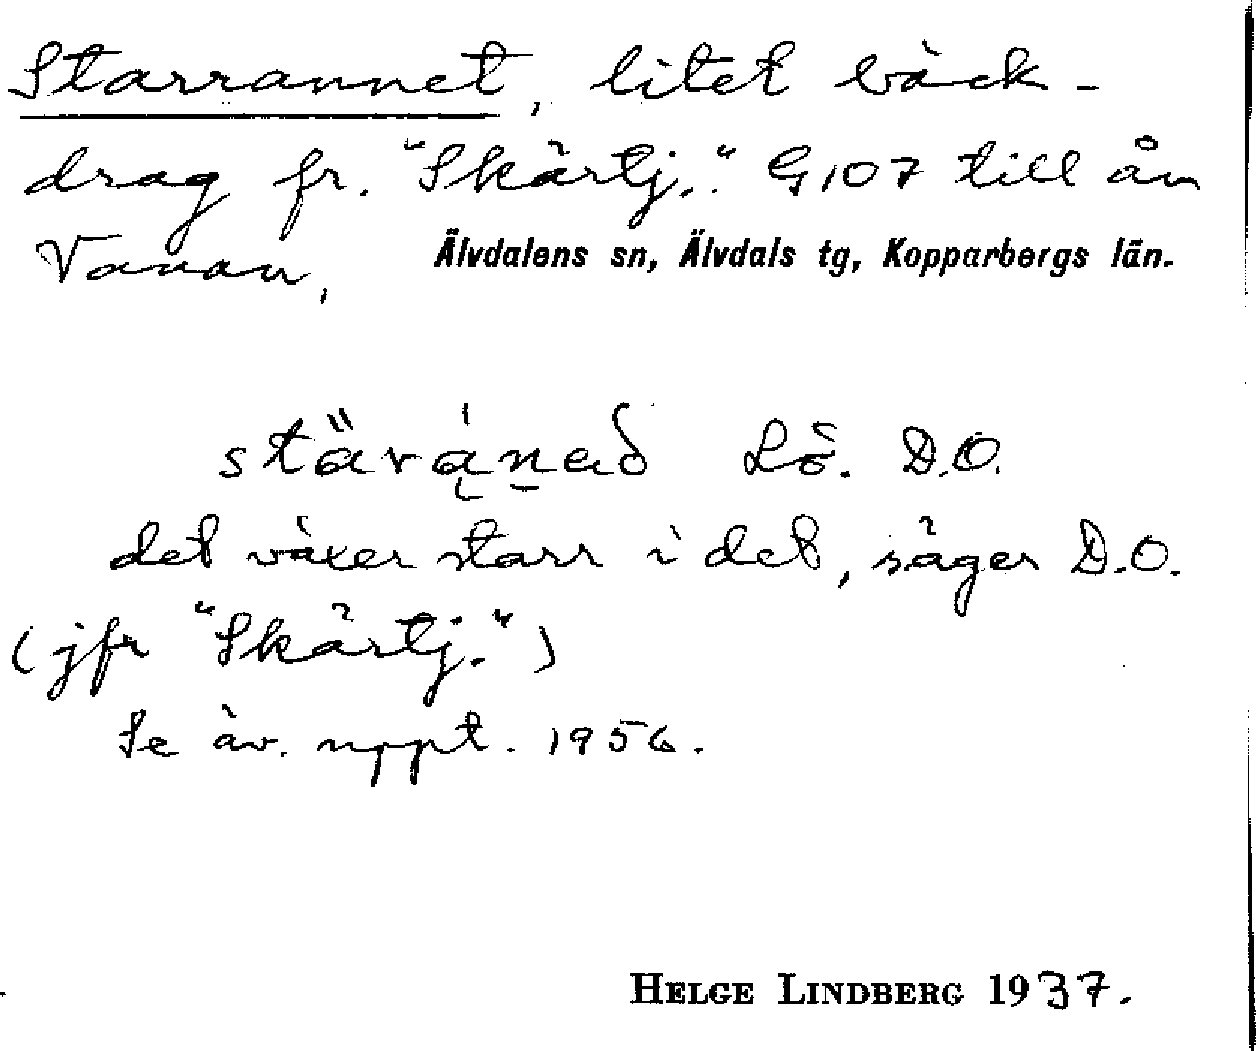 Starrannet, litet bäck-
drag fr. "Skärtj.". G107 till ån
Vanan, Älvdalens sn, Älvdals tg, Kopparbergs län.
Lö. D.O.
det växer starr i det, säger D.O.
(jfr "Skärtj.")
Se äv. uppt. 1956.
HELGE LINDBERG 1937.